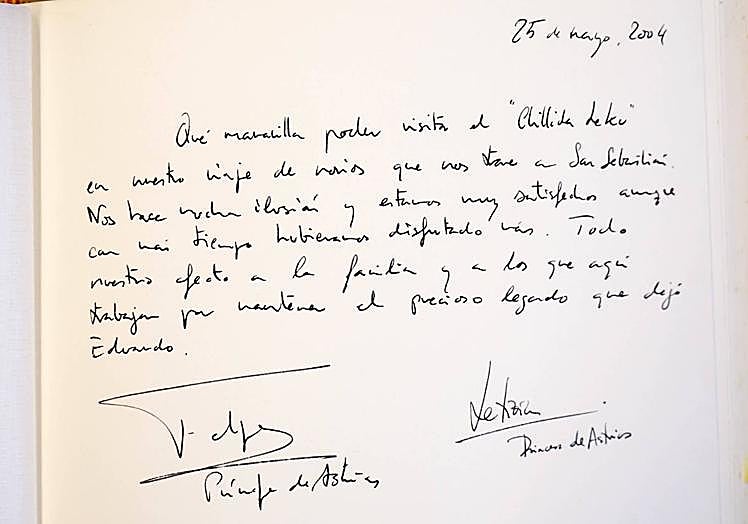 25 de mayo, 2004
Qué maravilla poder visitar el "Chillida Leku"
en nuestro viaje de novios que nos trae a San Sebastián.
Nos hace mucha ilusión y estamos muy satisfechos aunque
con más tiempo hubieramos disfrutado más. Todo
nuestro afecto a la familia y a los que aquí
trabajan por mantener el precioso legado que dejó
Eduardo.
Felipe
Letizia
Príncipe de Asturias
Princesa de Asturias